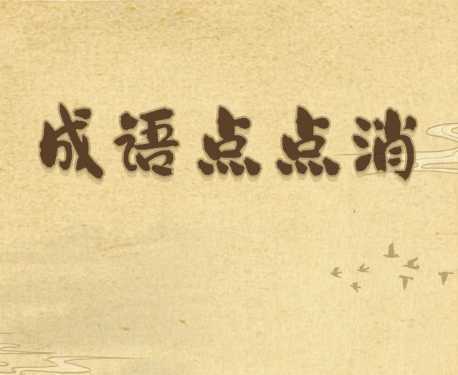 成语点点消